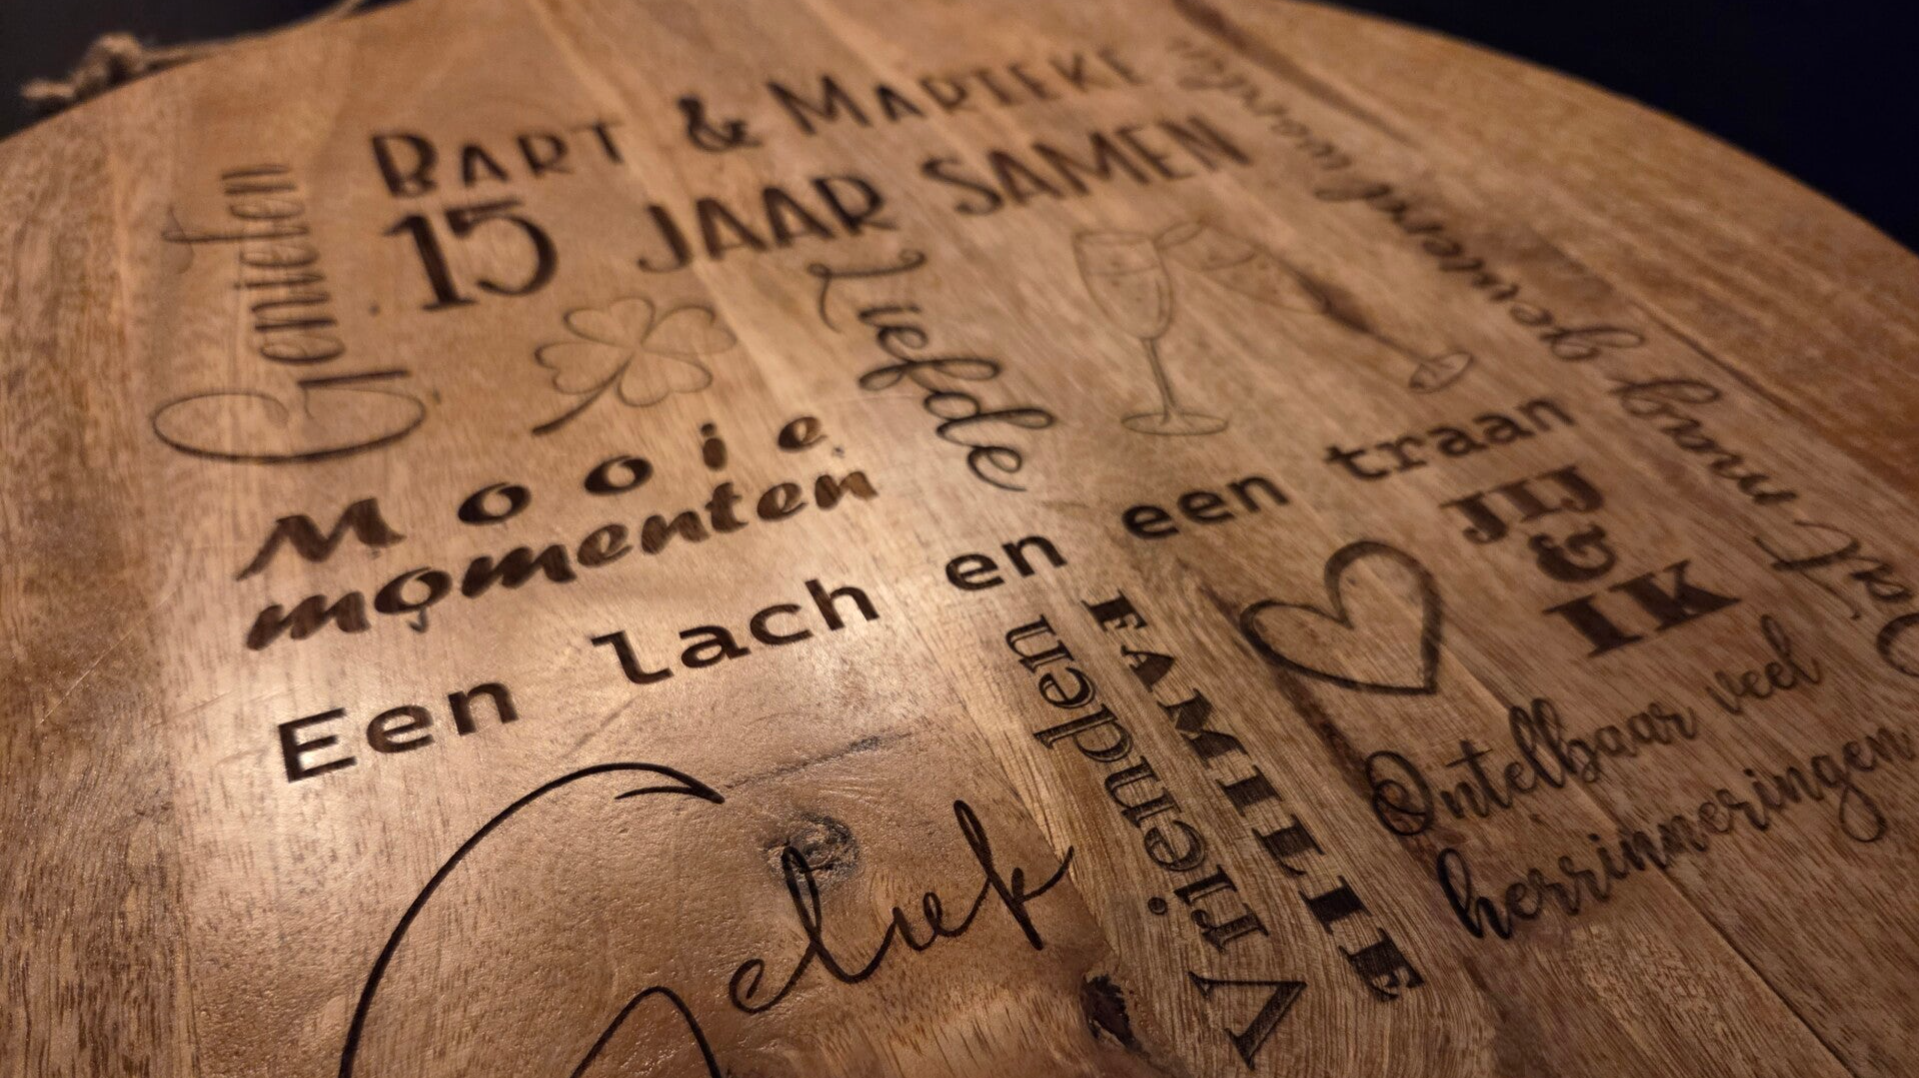 BART & MARIEKE
15 JAAR SAMEN
Genieten
Liefde
Dat mag gevierd worden
Mooie
momenten
Een lach en een traan
JIJ
&
IK
Vrienden
FAMILIE
Geluk
Ontelbaar veel
herrinneringen